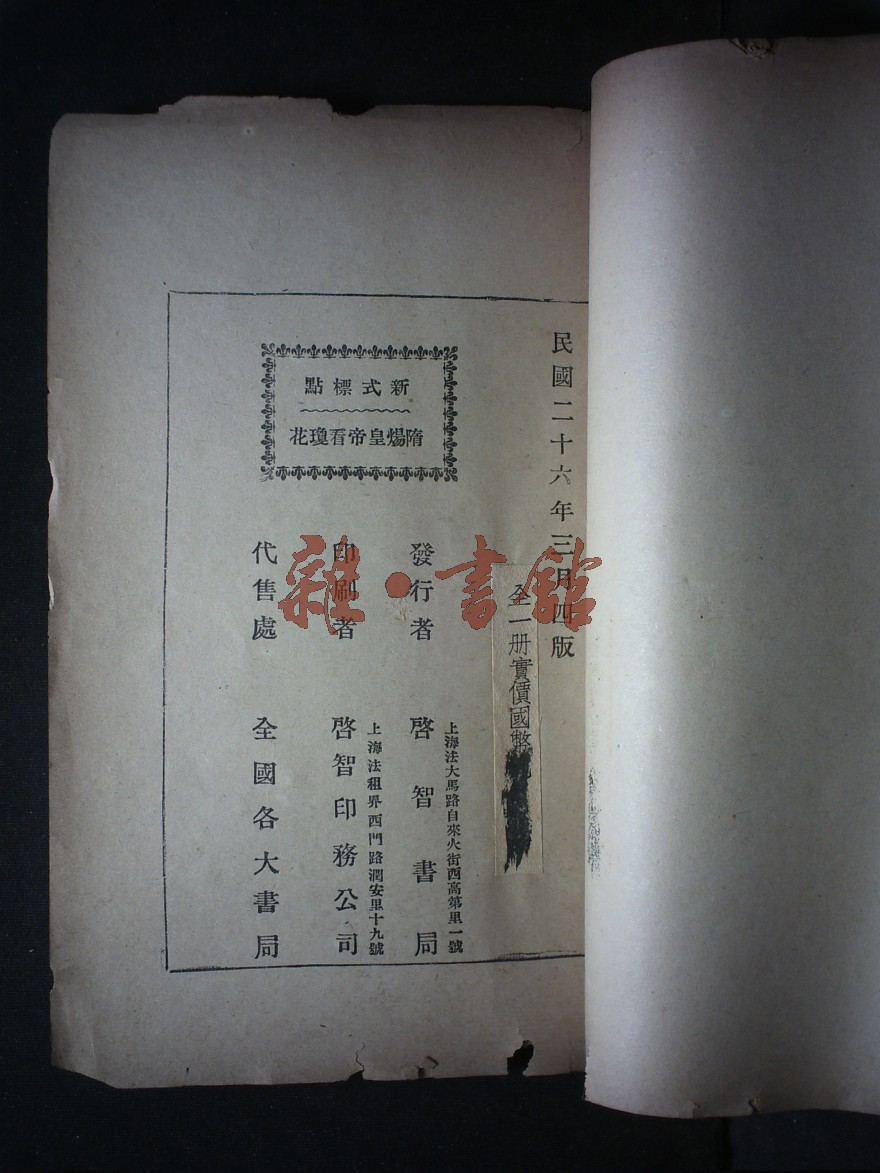 民國二十六年三月四版
全一册實價國幣
新式標點
隋煬皇帝看瓊花
發行者 啓智書局
上海法大馬路自來火街西高第里一號
印刷者 啓智印務公司
上海法租界西門路潤安里十九號
代售處 全國各大書局
雜·書館